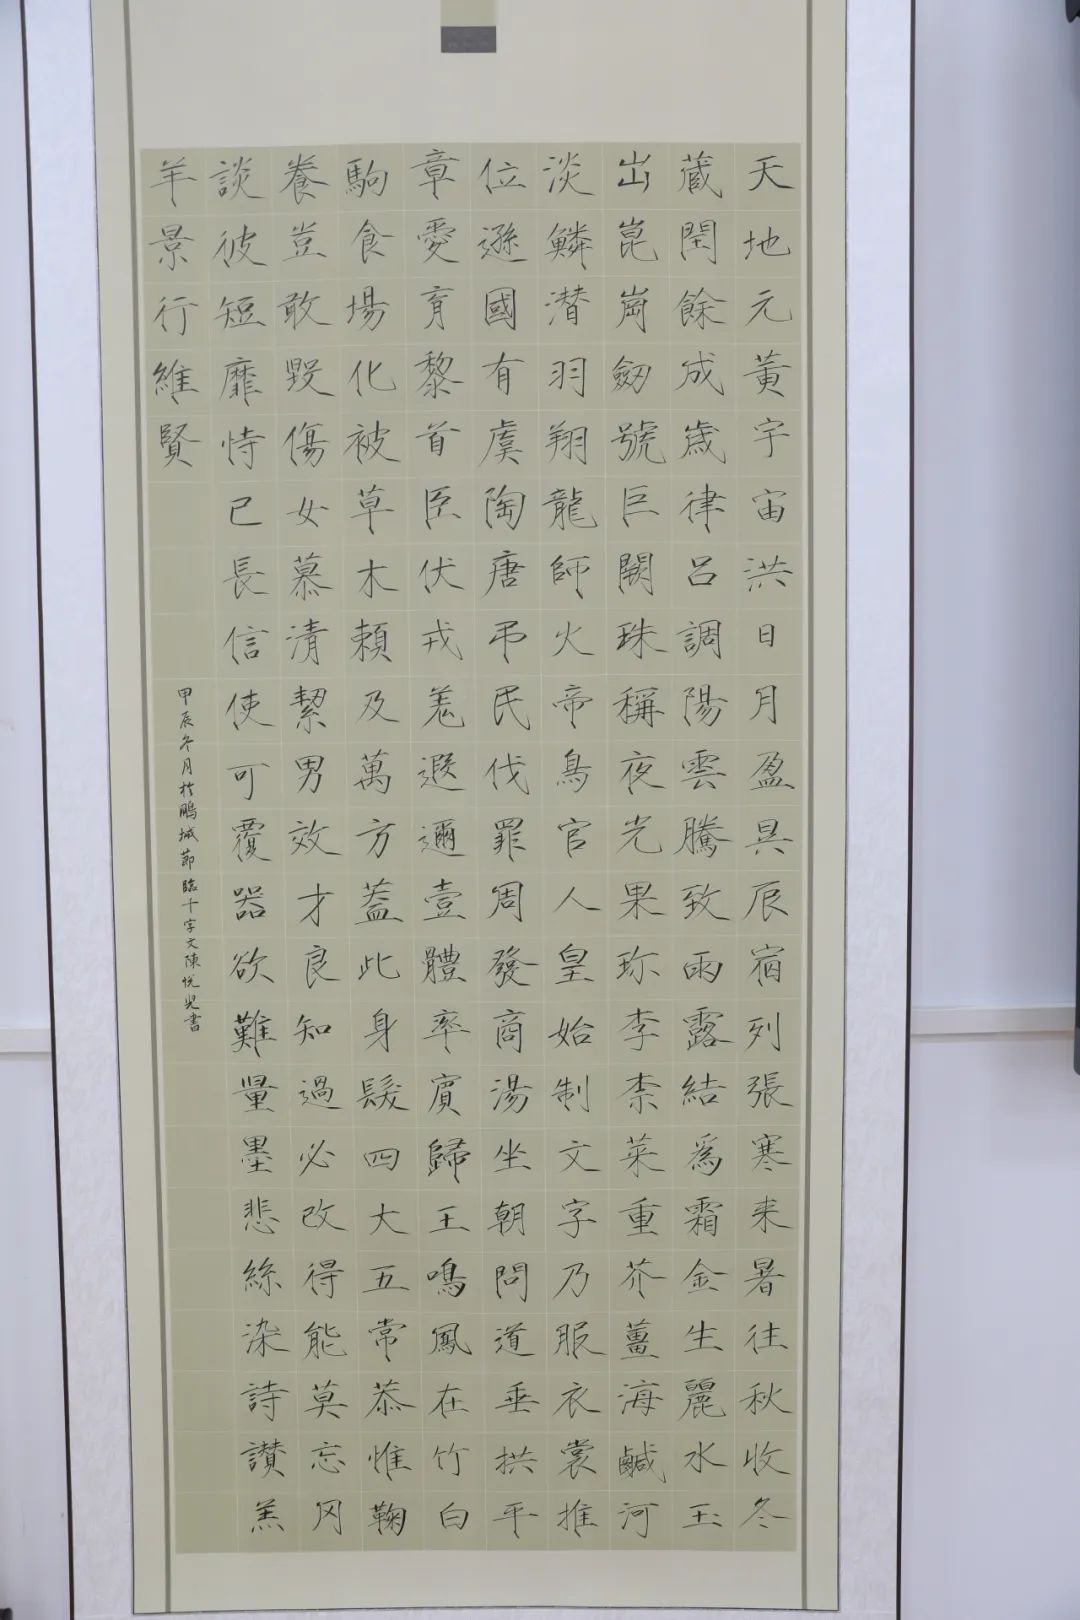 天地元黃宇宙洪日月盈昃辰宿列張寒来暑往秋收冬
蔵閏餘成歲律呂調陽雲騰致雨露結為霜金生麗水玉
出崑崗劔號巨闕珠稱夜光果珍李柰菜重芥薑海鹹河
淡鱗潜羽翔龍師火帝鳥官人皇始制文字乃服衣裳推
位遜國有虞陶唐弔民伐罪周發商湯坐朝問道垂拱平
章愛育黎首臣伏戎羌遐邇壹體率賓歸王鳴鳳在竹白
駒食場化被草木賴及萬方蓋此身髮四大五常恭惟鞠
養豈敢毀傷女慕清絜男效才良知過必改得能莫忘罔
談彼短靡恃己長信使可覆器欲難量墨悲絲染詩讃羔
羊景行維賢
甲辰冬月於鵬城節臨千字文陳悅兒書